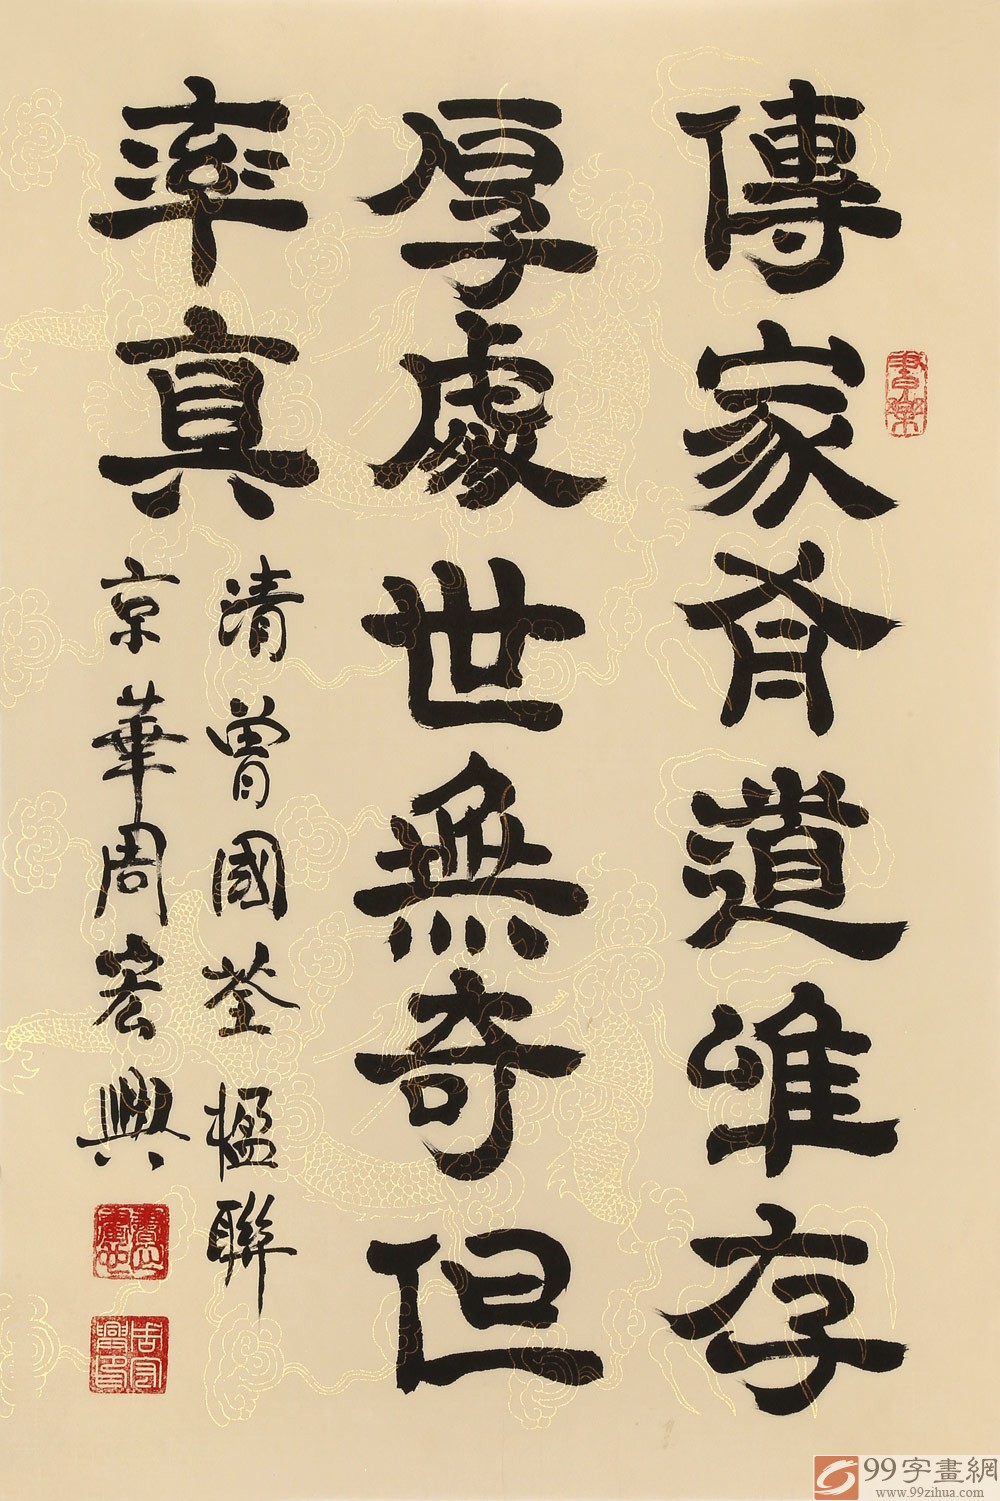 傳家有道唯存
厚處世無奇但
率真
清曾國荃楹聯
京華周宏興
99字畫網
www.99zihua.com